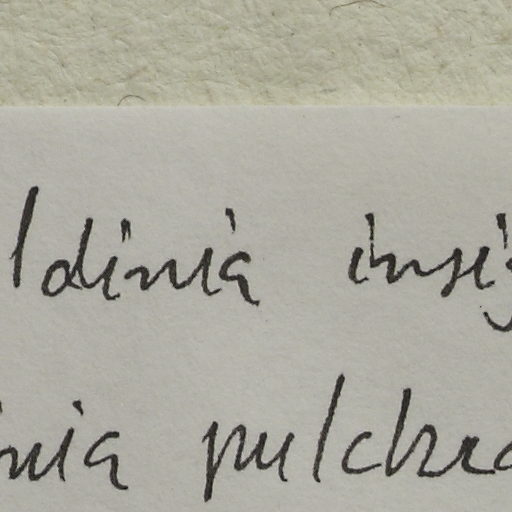 ldinia insig
inia pulchra